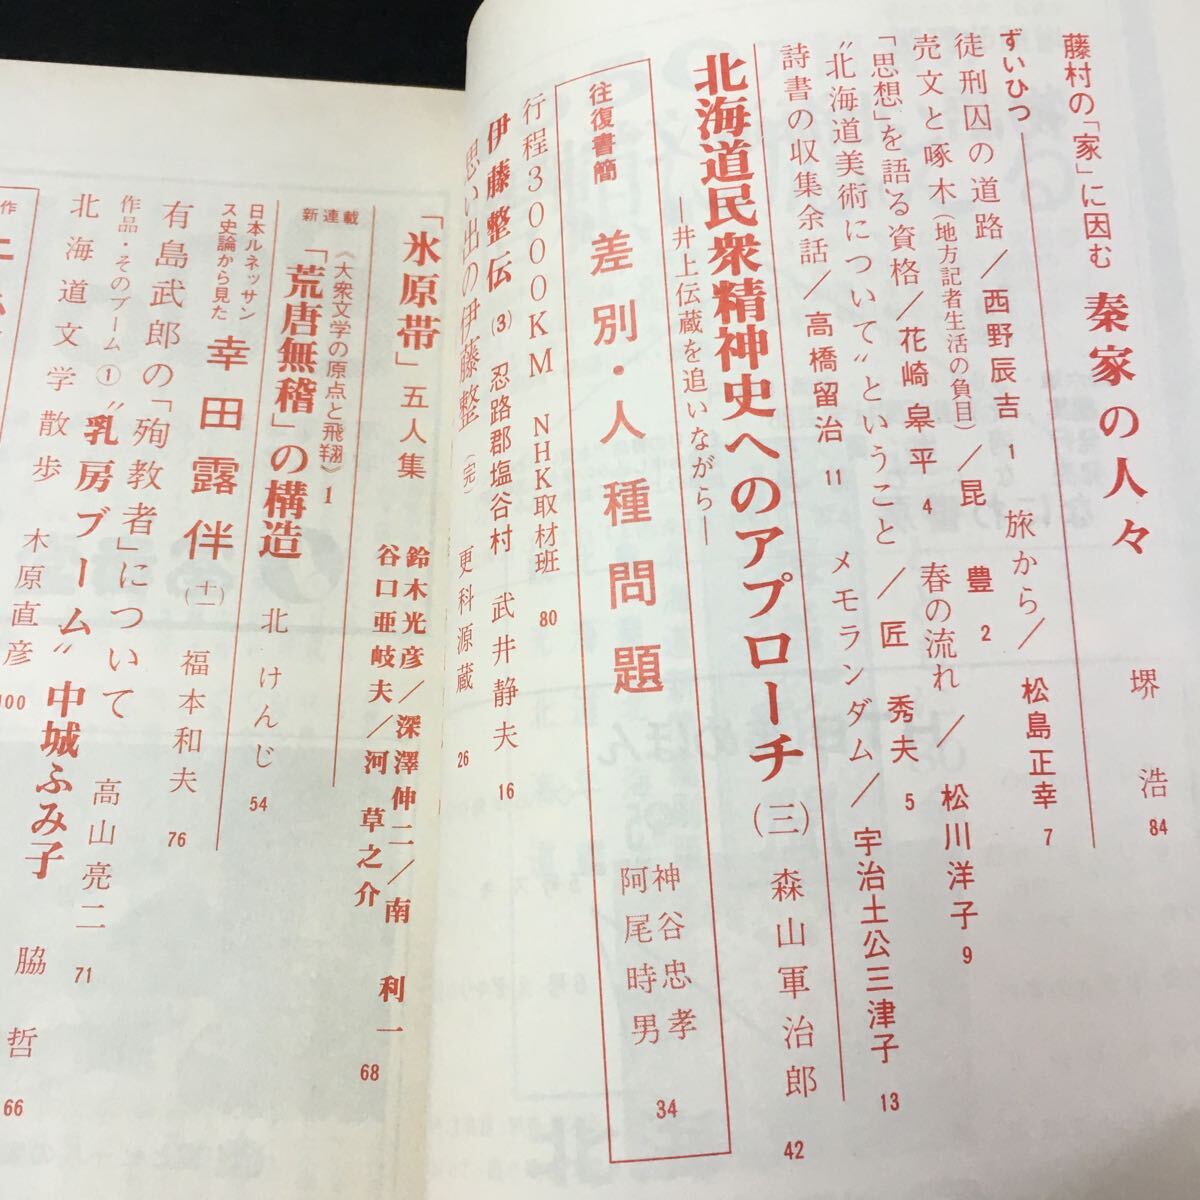 藤村の「家」に因む 秦家の人々 堺 浩 84
ずいひつ
徒刑囚の道路/西野辰吉 1 旅から/松島正幸 7
売文と啄木(地方記者生活の負目)/昆 豊 2 春の流れ/松川洋子 9
「思想」を語る資格/花崎皋平 4
“北海道美術について”ということ/匠 秀夫 5
詩書の収集余話/高橋留治 11 メモランダム/宇治土公三津子 13
北海道民衆精神史へのアプローチ(三) 森山軍治郎 42
―井上伝蔵を追いながら―
往復書簡 差別・人種問題 神谷忠孝 阿尾時男 34
行程3000KM NHK取材班 80
伊藤整伝(3) 忍路郡塩谷村 武井静夫 16
思い出の伊藤整(完) 更科源蔵 26
「氷原帯」五人集 鈴木光彦/深澤伸二/南 利一 谷口亜岐夫/河 草之介 68
新連載 《大衆文学の原点と飛翔》1
「荒唐無稽」の構造 北 けんじ 54
日本ルネッサンス史論から見た 幸田露伴(十一) 福本和夫 76
有島武郎の「殉教者」について 高山亮二 71
作品・そのブーム① “乳房ブーム” 中城ふみ子 脇 哲 66
北海道文学散歩 木原直彦 100
作